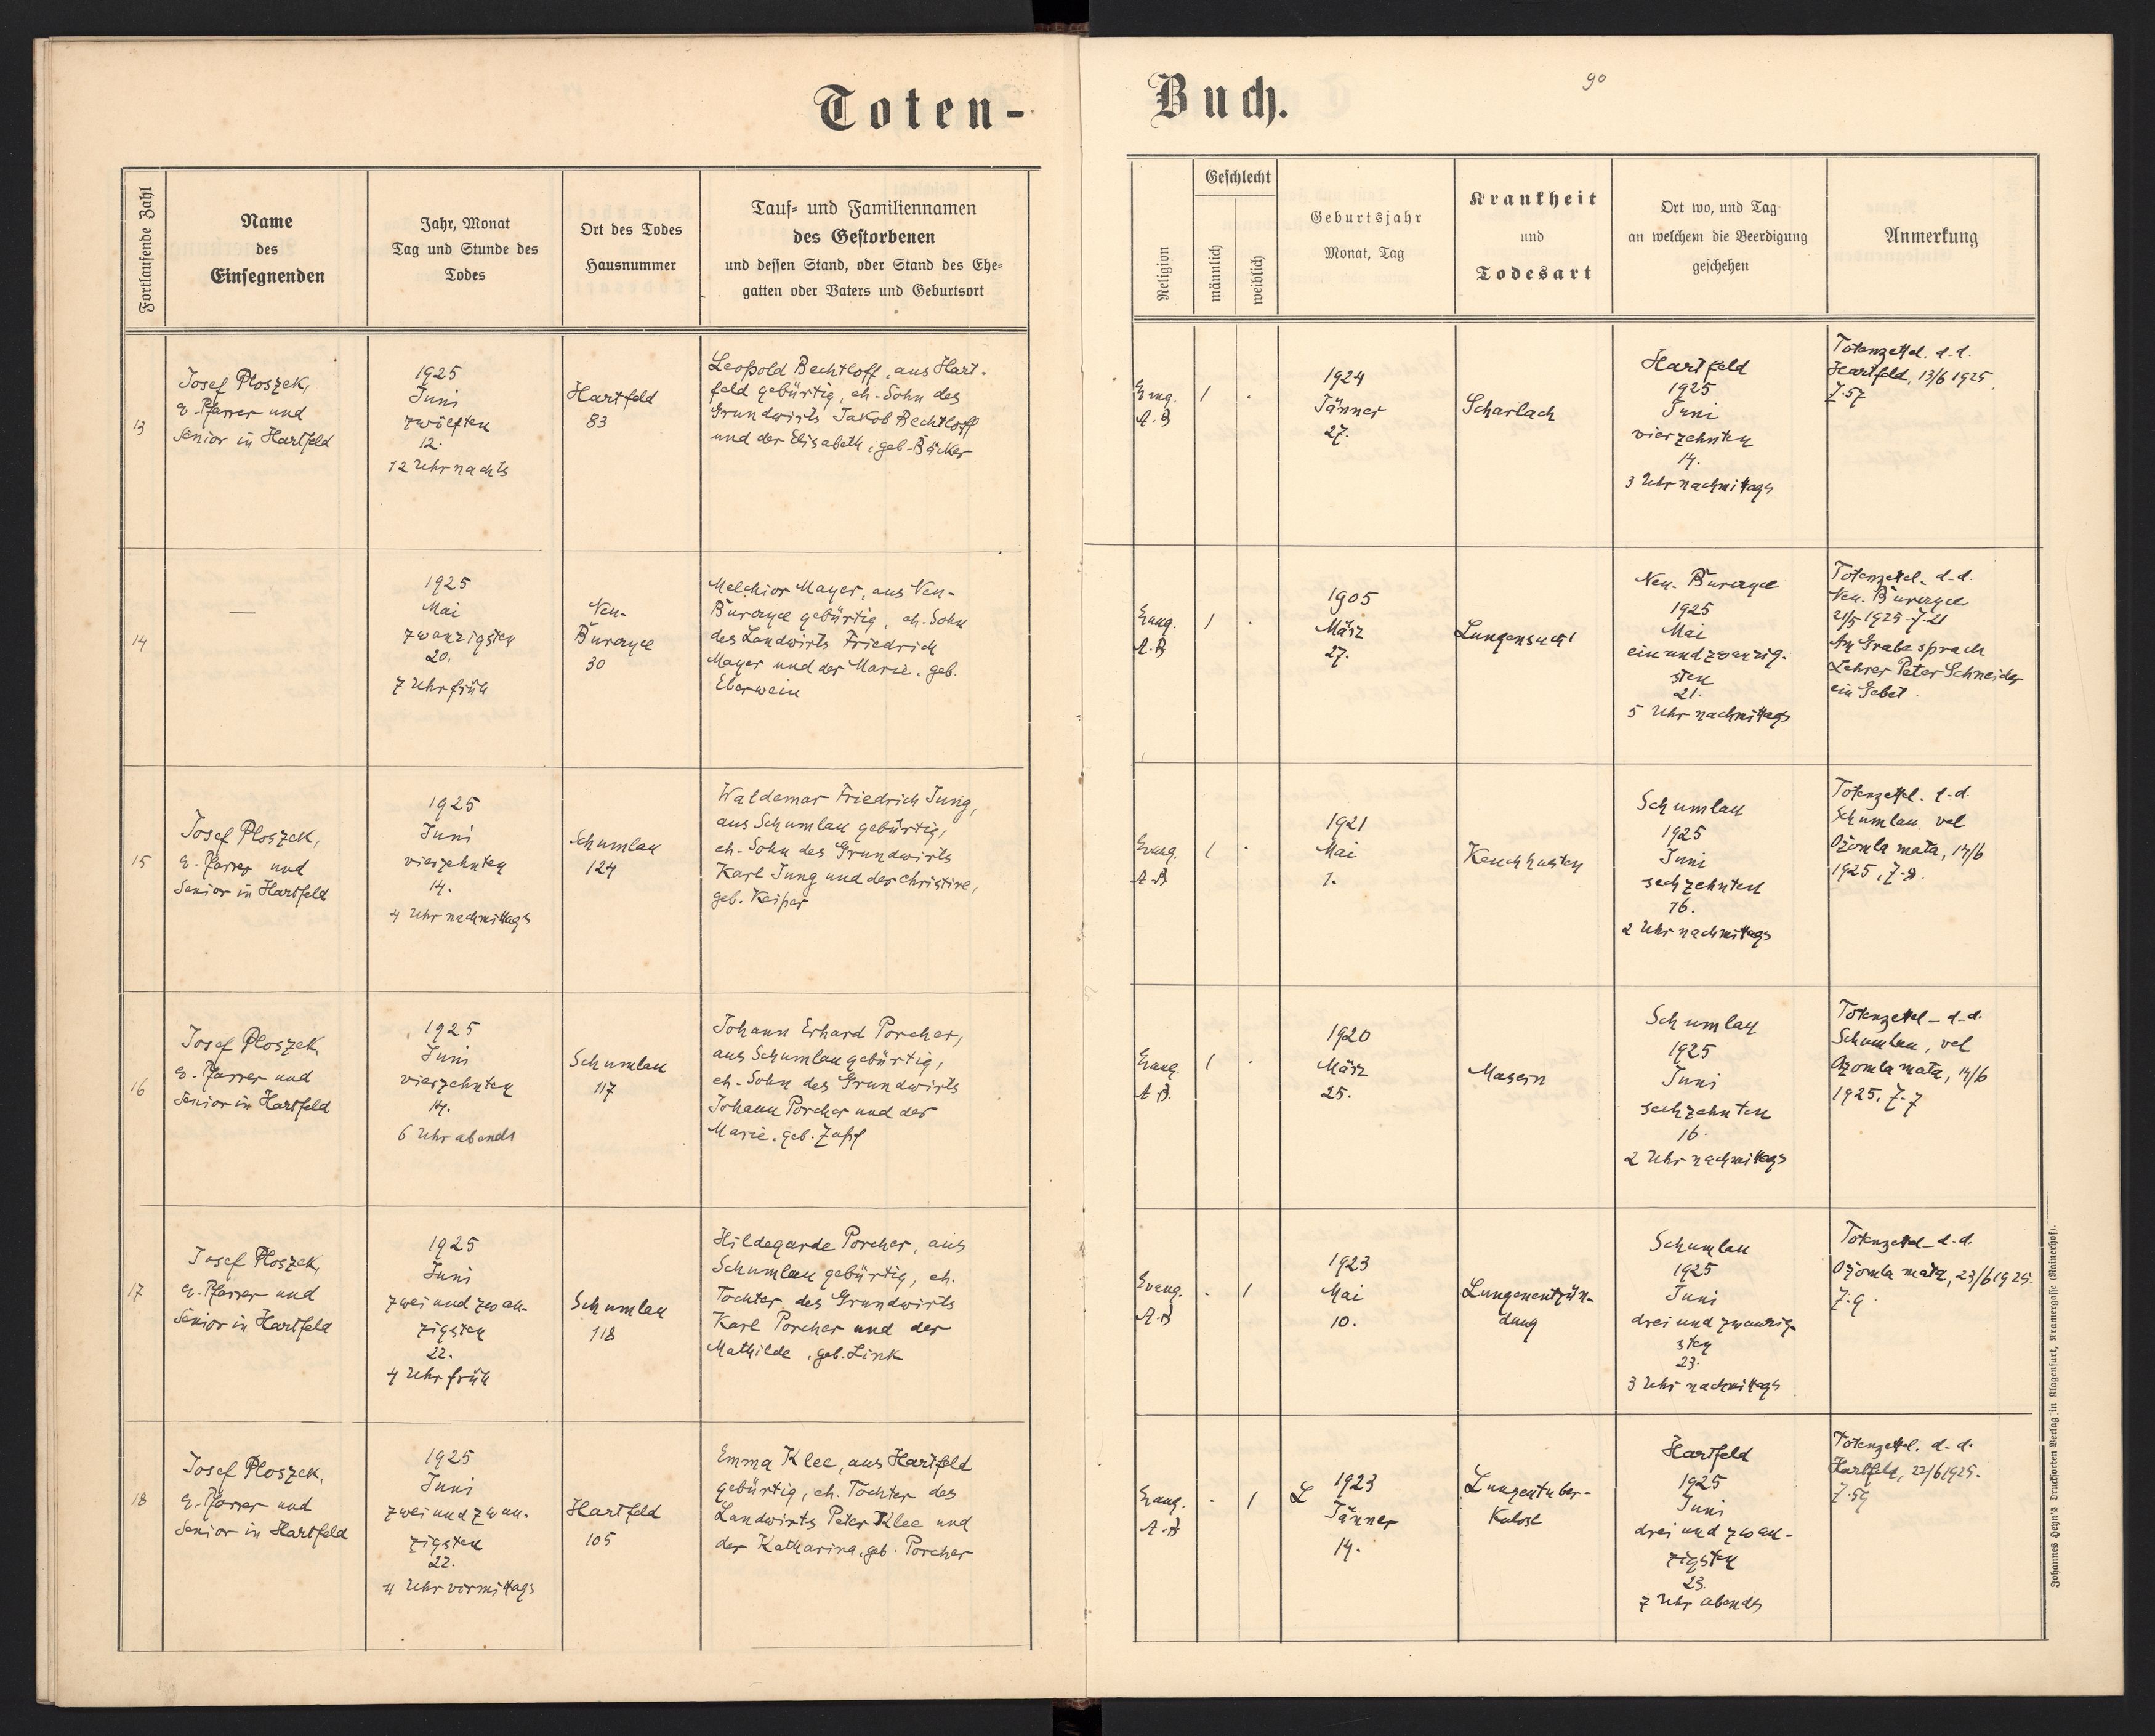 Toten-
Buch.
90
Fortlaufende Zahl
Name
des
Einsegnenden
Jahr, Monat
Tag und Stunde des
Todes
Ort des Todes
Hausnummer
Tauf- und Familiennamen
des Gestorbenen
und dessen Stand, oder Stand des Ehe-
gatten oder Vaters und Geburtsort
Religion
Geschlecht
männlich
weiblich
Geburtsjahr
Monat, Tag
Krankheit
und
Todesart
Ort wo, und Tag
an welchem die Beerdigung
geschehen
Anmerkung
13
Josef Ploszek,
e. Pfarrer und
Senior in Hartfeld
1925
Juni
zwölften
12.
12 Uhr nachts
Hartfeld
83
Leopold Bechtloff, aus Hart-
feld gebürtig, eh. Sohn des
Grundwirts Jakob Bechtloff
und der Elisabeth, geb. Bäcker
Evang.
A.B
1
.
1924
Jänner
27.
Scharlach
Hartfeld
1925
Juni
vierzehnten
14.
3 Uhr nachmittags
Totenzettel. d.d.
Hartfeld, 13/6 1925.
Z.57
14
—
1925
Mai
zwanzigsten
20.
7 Uhr früh
Neu-
Burczyce
30
Melchior Mayer, aus Neu-
Burczyce gebürtig, eh. Sohn
des Landwirts Friedrich
Mayer und der Marie, geb.
Eberwein
Evang.
A.B
1
.
1905
März
27.
Lungensucht
Neu-Burczyce
1925
Mai
einundzwanzig-
sten
21.
5 Uhr nachmittags
Totenzettel. d.d.
Neu-Burczyce
21/5 1925. Z.21
Am Grabe sprach
Lehrer Peter Schneider
ein Gebet.
15
Josef Ploszek,
e. Pfarrer und
Senior in Hartfeld
1925
Juni
vierzehnten
14.
4 Uhr nachmittags
Schumlau
124
Waldemar Friedrich Jung,
aus Schumlau gebürtig,
eh. Sohn des Grundwirts
Karl Jung und der Christine,
geb. Keiper
Evang.
A.B
1
.
1921
Mai
1.
Keuchhusten
Schumlau
1925
Juni
sechzehnten
16.
2 Uhr nachmittags
Totenzettel. d.d.
Schumlau vel
Ozomla mała, 14/6
1925, Z.8.
16
Josef Ploszek,
e. Pfarrer und
Senior in Hartfeld
1925
Juni
vierzehnten
14.
6 Uhr abends
Schumlau
117
Johann Erhard Porcher,
aus Schumlau gebürtig,
eh. Sohn des Grundwirts
Johann Porcher und der
Marie, geb. Zapf
Evang.
A.B.
1
.
1920
März
25.
Masern
Schumlau
1925
Juni
sechzehnten
16.
2 Uhr nachmittags
Totenzettel d.d.
Schumlau, vel
Ozomla mała, 14/6
1925, Z.7
17
Josef Ploszek,
e. Pfarrer und
Senior in Hartfeld
1925
Juni
zwei und zwan-
zigsten
22.
4 Uhr früh
Schumlau
118
Hildegarde Porcher, aus
Schumlau gebürtig, eh.
Tochter des Grundwirts
Karl Porcher und der
Mathilde, geb. Link
Evang.
A.B
.
1
1923
Mai
10.
Lungenentzün-
dung
Schumlau
1925
Juni
drei und zwanzig-
sten
23.
3 Uhr nachmittags
Totenzettel d.d.
Ozomla mała, 23/6 1925.
Z.9.
18
Josef Ploszek,
e. Pfarrer und
Senior in Hartfeld
1925
Juni
zwei und zwan-
zigsten
22.
11 Uhr vormittags
Hartfeld
105
Emma Klee, aus Hartfeld
gebürtig, eh. Tochter des
Landwirts Peter Klee und
der Katharina, geb. Porcher
Evang.
A.B
.
1
1923
Jänner
14.
Lungentuber-
kulose
Hartfeld
1925
Juni
drei und zwan-
zigsten
23.
7 Uhr abends
Totenzettel. d.d.
Hartfeld, 22/6 1925.
Z.59
Johannes Heyn's Drucksorten Verlag in Klagenfurt, Kramergasse (Rainerhof).